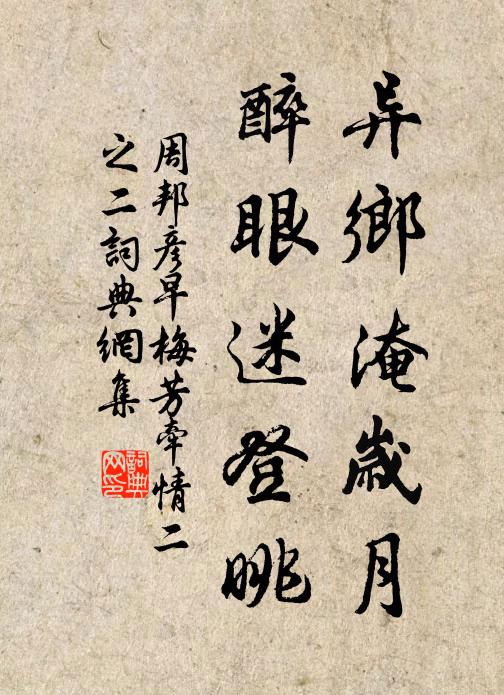 异鄉淹歲月
醉眼迷登眺
周邦彦早梅芳牽情二
之二詞典網集
詞典
网印